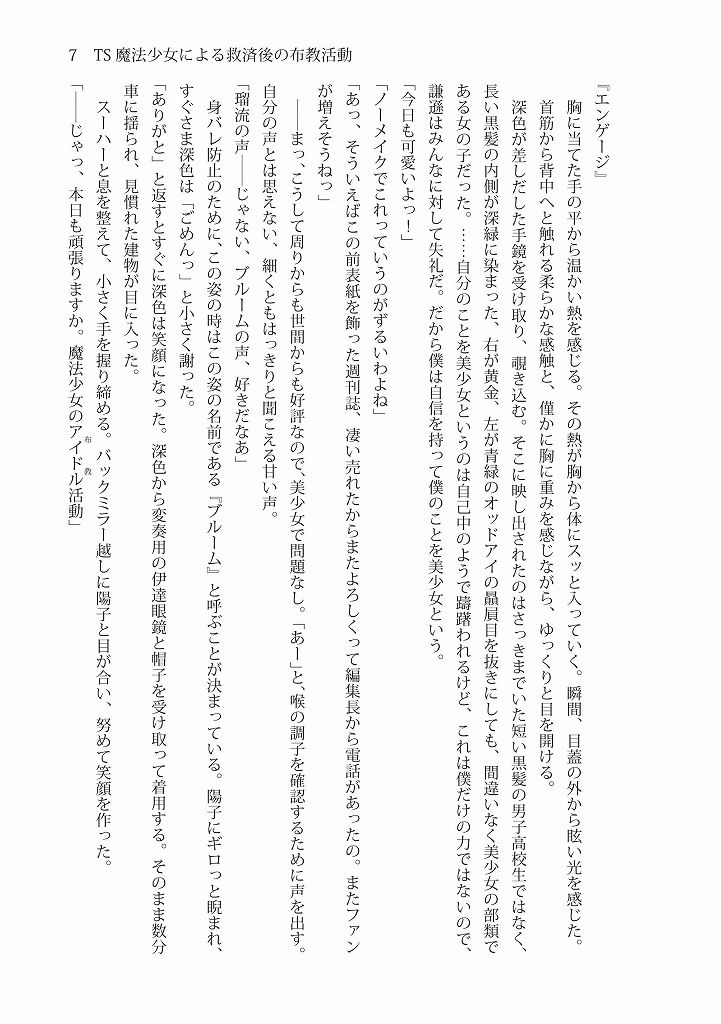 7 TS魔法少女による救済後の布教活動
『エンゲージ』
　胸に当てた手の平から温かい熱を感じる。その熱が胸から体にスッと入っていく。瞬間、目蓋の外から眩い光を感じた。
　首筋から背中へと触れる柔らかな感触と、僅かに胸に重みを感じながら、ゆっくりと目を開ける。
　深色が差しだした手鏡を受け取り、覗き込む。そこに映し出されたのはさっきまでいた短い黒髪の男子高校生ではなく、
長い黒髪の内側が深緑に染まった、右が黄金、左が青緑のオッドアイの贔屓目を抜きにしても、間違いなく美少女の部類で
ある女の子だった。……自分のことを美少女というのは自己中のようで躊躇われるけど、これは僕だけの力ではないので、
謙遜はみんなに対して失礼だ。だから僕は自信を持って僕のことを美少女という。
「今日も可愛いよっ！」
「ノーメイクでこれっていうのがずるいわよね」
「あっ、そういえばこの前表紙を飾った週刊誌、凄い売れたからまたよろしくって編集長から電話があったの。またファン
が増えそうねっ」
　――まっ、こうして周りからも世間からも好評なので、美少女で問題なし。「あー」と、喉の調子を確認するために声を出す。
自分の声とは思えない、細くともはっきりと聞こえる甘い声。
「瑠流の声――じゃない、ブルームの声、好きだなあ」
　身バレ防止のために、この姿の時はこの姿の名前である『ブルーム』と呼ぶことが決まっている。陽子にギロっと睨まれ、
すぐさま深色は「ごめんっ」と小さく謝った。
「ありがと」と返すとすぐに深色は笑顔になった。深色から変奏用の伊達眼鏡と帽子を受け取って着用する。そのまま数分
車に揺られ、見慣れた建物が目に入った。
　スーハーと息を整えて、小さく手を握り締める。バックミラー越しに陽子と目が合い、努めて笑顔を作った。
「――じゃっ、本日も頑張りますか。魔法少女のアイドル活動」
布教